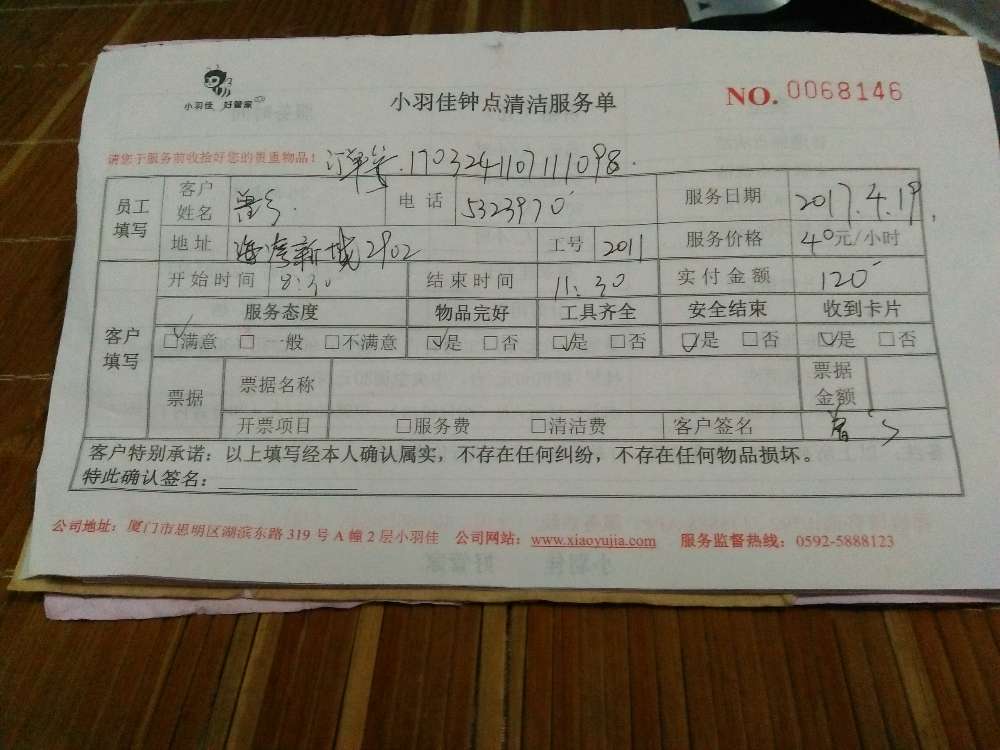 小羽佳 好管家
小羽佳钟点清洁服务单
NO. 0068146
请您于服务前收拾好您的贵重物品！
订单号.1703241107111098.
员工填写 客户姓名 电话 5323970 服务日期 2017.4.19.
地址 海湾新城2902 工号 2011 服务价格 40元/小时
客户填写 开始时间 8:30 结束时间 11:30 实付金额 120
服务态度 物品完好 工具齐全 安全结束 收到卡片
☑满意 □一般 □不满意 ☑是 □否 ☑是 □否 ☑是 □否 ☑是 □否
票据 票据名称 票据金额
开票项目 □服务费 □清洁费 客户签名
客户特别承诺：以上填写经本人确认属实，不存在任何纠纷，不存在任何物品损坏。
特此确认签名：
公司地址：厦门市思明区湖滨东路 319 号 A 幢 2 层小羽佳 公司网站：www.xiaoyujia.com 服务监督热线：0592-5888123